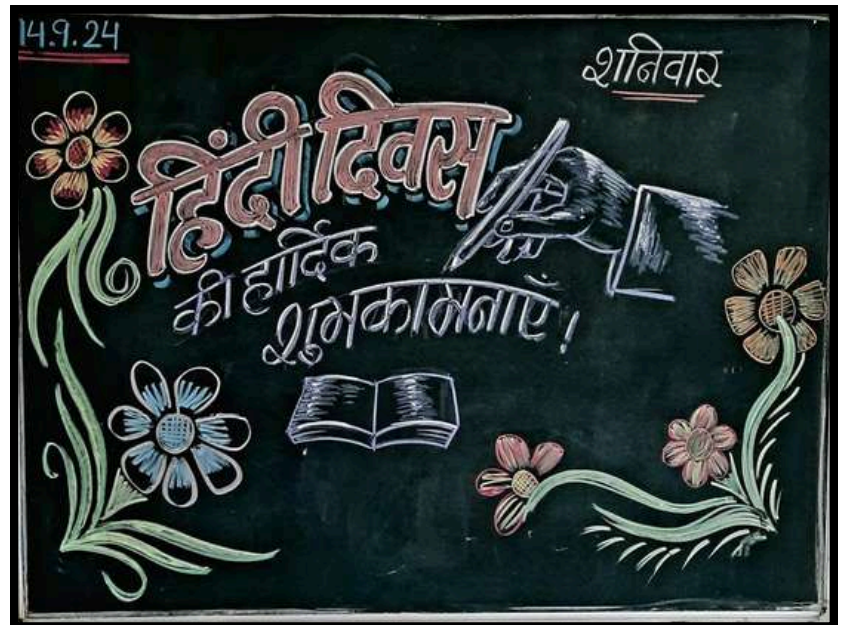 14.9.24
शनिवार
हिंदी दिवस
की हार्दिक
शुभकामनाएँ।